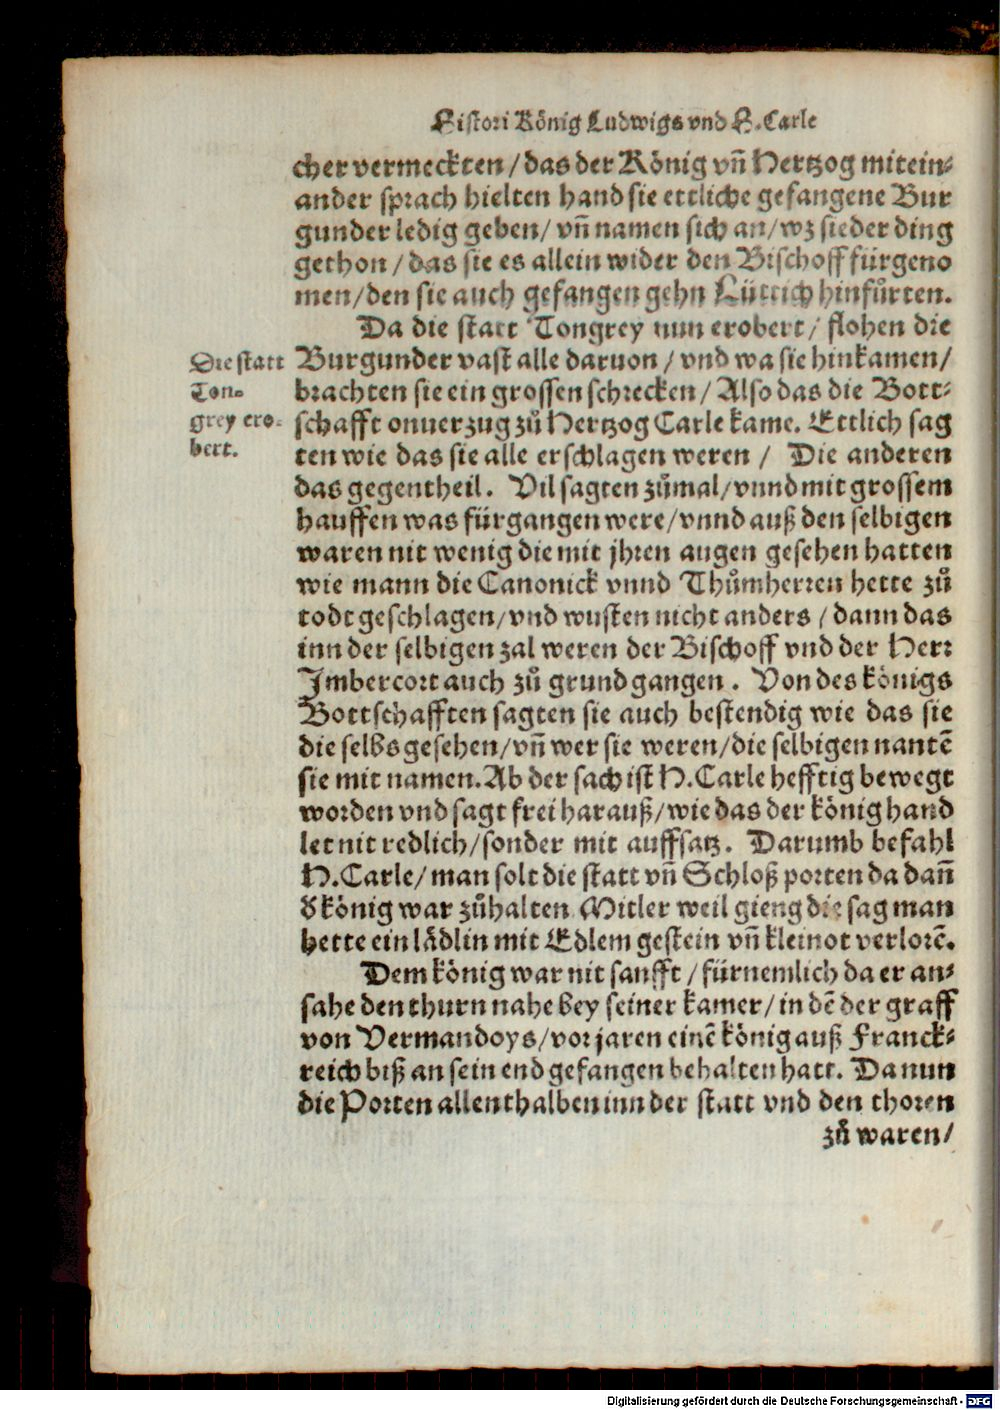 Histori König Ludwigs vnd H. Carle
cher vermeckten / das der König vñ Hertzog mitein-
ander sprach hielten hand sie ettliche gefangene Bur
gunder ledig geben / vñ namen sich an / wz sie der ding
gethon / das sie es allein wider den Bischoff fürgeno
men / den sie auch gefangen gehn Lüttich hinfůrten.
Da die statt Tongrey nun erobert / flohen die
Die statt
Ton-
grey ero-
bert.
Burgunder vast alle daruon / vnd wa sie hinkamen /
brachten sie ein grossen schrecken / Also das die Bott-
schafft onuerzug zů Hertzog Carle kame. Ettlich sag
ten wie das sie alle erschlagen weren / Die anderen
das gegentheil. Vil sagten zůmal / vnnd mit grossem
hauffen was fürgangen were / vnnd auß den selbigen
waren nit wenig die mit jhren augen gesehen hatten
wie mann die Canonick vnnd Thůmherren hette zů
todt geschlagen / vnd wusten nicht anders / dann das
inn der selbigen zal weren der Bischoff vnd der Herr
Jmbercort auch zů grund gangen. Von des königs
Bottschafften sagten sie auch bestendig wie das sie
die selbs gesehen / vñ wer sie weren / die selbigen nantē
sie mit namen. Ab der sach ist H. Carle hefftig bewegt
worden vnd sagt frei harauß / wie das der könig hand
let nit redlich / sonder mit auffsatz. Darumb befahl
H. Carle / man solt die statt vñ Schloß porten da dañ
d' könig war zůhalten. Mitler weil gieng die sag man
hette ein lädlin mit Edlem gestein vñ kleinot verlorē.
Dem könig war nit sanfft / fürnemlich da er an-
sahe den thurn nahe bey seiner kamer / in dē der graff
von Vermandoys / vor jaren einē könig auß Franck-
reich biß an sein end gefangen behalten hatt. Da nun
die Porten allenthalben inn der statt vnd den thoren
zů waren /
Digitalisierung gefördert durch die Deutsche Forschungsgemeinschaft - DFG